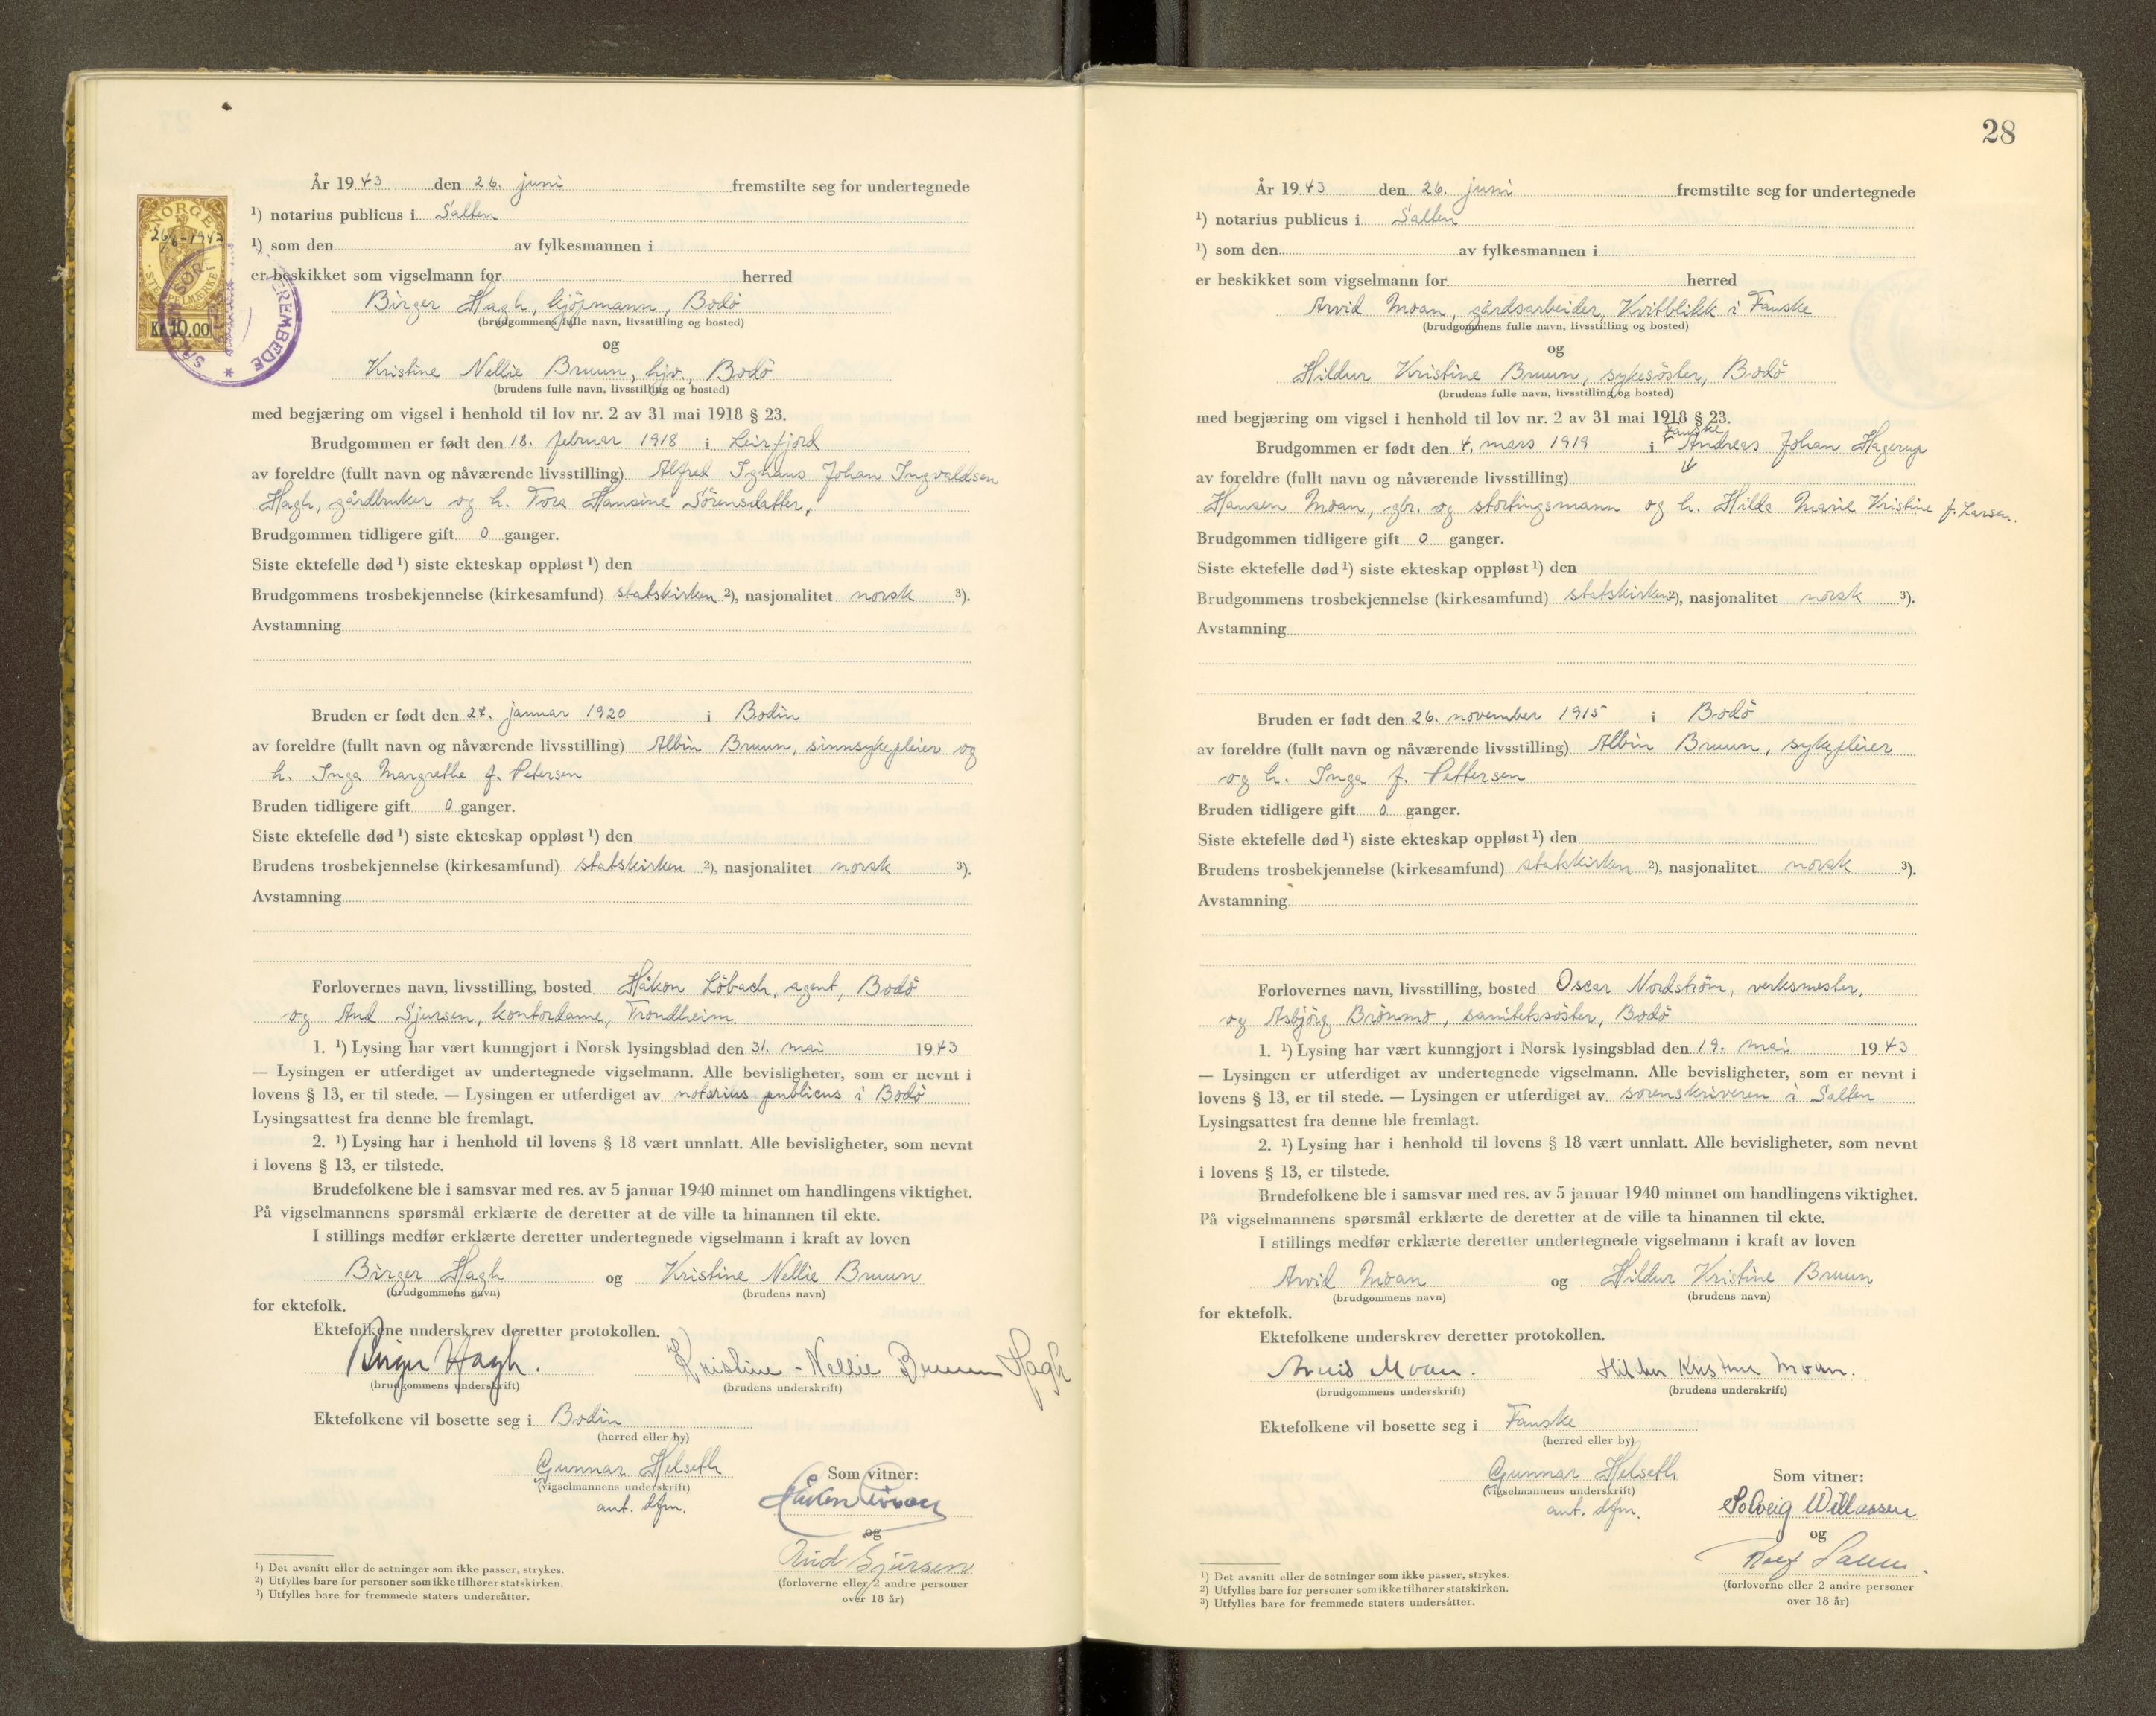 NORGE
26/6-1943
STEMPELMERKE
Kr.10.00
SALTEN SORENSKRIVEREMBEDE *
År 1943 den 26. juni fremstilte seg for undertegnede
¹) notarius publicus i Salten
¹) som den av fylkesmannen i
er beskikket som vigselmann for herred
Birger Hagh, kjöpmann, Bodö
(brudgommens fulle navn, livsstilling og bosted)
og
Kristine Nellie Bruun, hjv., Bodö
(brudens fulle navn, livsstilling og bosted)
med begjæring om vigsel i henhold til lov nr. 2 av 31 mai 1918 § 23.
Brudgommen er født den 18. februar 1918 i Leirfjord
av foreldre (fullt navn og nåværende livsstilling) Alfred Johan Ingvaldsen
Hagh, gårdbruker og h. Tora Hansine Sörensdatter,
Brudgommen tidligere gift 0 ganger.
Siste ektefelle død ¹) siste ekteskap oppløst ¹) den
Brudgommens trosbekjennelse (kirkesamfund) statskirken ²), nasjonalitet norsk ³).
Avstamning
Bruden er født den 27. januar 1920 i Bodin
av foreldre (fullt navn og nåværende livsstilling) Albin Bruun, sinnsykepleier og
h. Inga Margrethe f. Petersen
Bruden tidligere gift 0 ganger.
Siste ektefelle død ¹) siste ekteskap oppløst ¹) den
Brudens trosbekjennelse (kirkesamfund) statskirken ²), nasjonalitet norsk ³).
Avstamning
Forlovernes navn, livsstilling, bosted Håkon Löbach, agent, Bodö
og Aud Sjursen, kontordame, Trondheim.
1. ¹) Lysing har vært kunngjort i Norsk lysingsblad den 31. mai 1943
— Lysingen er utferdiget av undertegnede vigselmann. Alle bevisligheter, som er nevnt i
lovens § 13, er til stede. — Lysingen er utferdiget av notarius publicus i Bodö
Lysingsattest fra denne ble fremlagt.
2. ¹) Lysing har i henhold til lovens § 18 vært unnlatt. Alle bevisligheter, som nevnt
i lovens § 13, er tilstede.
Brudefolkene ble i samsvar med res. av 5 januar 1940 minnet om handlingens viktighet.
På vigselmannens spørsmål erklærte de deretter at de ville ta hinannen til ekte.
I stillings medfør erklærte deretter undertegnede vigselmann i kraft av loven
Birger Hagh og Kristine Nellie Bruun
(brudgommens navn) (brudens navn)
for ektefolk.
Ektefolkene underskrev deretter protokollen.
Birger Hagh. Kristine-Nellie Bruun Hagh
(brudgommens underskrift) (brudens underskrift)
Ektefolkene vil bosette seg i Bodin
(herred eller by)
Gunnar Helseth Som vitner:
(vigselmannens underskrift)
aut. dfm.
Håkon
og
Aud Sjursen
(forloverne eller 2 andre personer
over 18 år)
¹) Det avsnitt eller de setninger som ikke passer, strykes.
²) Utfylles bare for personer som ikke tilhører statskirken.
³) Utfylles bare for fremmede staters undersåtter.
28
År 1943 den 26. juni fremstilte seg for undertegnede
¹) notarius publicus i Salten
¹) som den av fylkesmannen i
er beskikket som vigselmann for herred
Arvid Moan, gårdsarbeider, Kvitblikk i Fauske
(brudgommens fulle navn, livsstilling og bosted)
og
Hildur Kristine Bruun, sykesöster, Bodö
(brudens fulle navn, livsstilling og bosted)
med begjæring om vigsel i henhold til lov nr. 2 av 31 mai 1918 § 23.
Fauske
Brudgommen er født den 4. mars 1919 i Andreas Johan Hagerup
av foreldre (fullt navn og nåværende livsstilling)
Hansen Moan, gbr. og stortingsmann og h. Hilda Marie Kristine f. Larsen.
Brudgommen tidligere gift 0 ganger.
Siste ektefelle død ¹) siste ekteskap oppløst ¹) den
Brudgommens trosbekjennelse (kirkesamfund) statskirken ²), nasjonalitet norsk ³).
Avstamning
Bruden er født den 26. november 1915 i Bodö
av foreldre (fullt navn og nåværende livsstilling) Albin Bruun, sykepleier
og h. Inga f. Pettersen
Bruden tidligere gift 0 ganger.
Siste ektefelle død ¹) siste ekteskap oppløst ¹) den
Brudens trosbekjennelse (kirkesamfund) statskirken ²), nasjonalitet norsk ³).
Avstamning
Forlovernes navn, livsstilling, bosted Oscar Nordström, verksmester,
og Asbjörg Brönmo, sanitetssöster, Bodö
1. ¹) Lysing har vært kunngjort i Norsk lysingsblad den 19. mai 1943
— Lysingen er utferdiget av undertegnede vigselmann. Alle bevisligheter, som er nevnt i
lovens § 13, er til stede. — Lysingen er utferdiget av sorenskriveren i Salten
Lysingsattest fra denne ble fremlagt.
2. ¹) Lysing har i henhold til lovens § 18 vært unnlatt. Alle bevisligheter, som nevnt
i lovens § 13, er tilstede.
Brudefolkene ble i samsvar med res. av 5 januar 1940 minnet om handlingens viktighet.
På vigselmannens spørsmål erklærte de deretter at de ville ta hinannen til ekte.
I stillings medfør erklærte deretter undertegnede vigselmann i kraft av loven
Arvid Moan og Hildur Kristine Bruun
(brudgommens navn) (brudens navn)
for ektefolk.
Ektefolkene underskrev deretter protokollen.
Arvid Moan. Hildur Kristine Moan.
(brudgommens underskrift) (brudens underskrift)
Ektefolkene vil bosette seg i Fauske
(herred eller by)
Gunnar Helseth Som vitner:
(vigselmannens underskrift)
aut. dfm.
Solveig Willassen
og
(forloverne eller 2 andre personer
over 18 år)
¹) Det avsnitt eller de setninger som ikke passer, strykes.
²) Utfylles bare for personer som ikke tilhører statskirken.
³) Utfylles bare for fremmede staters undersåtter.